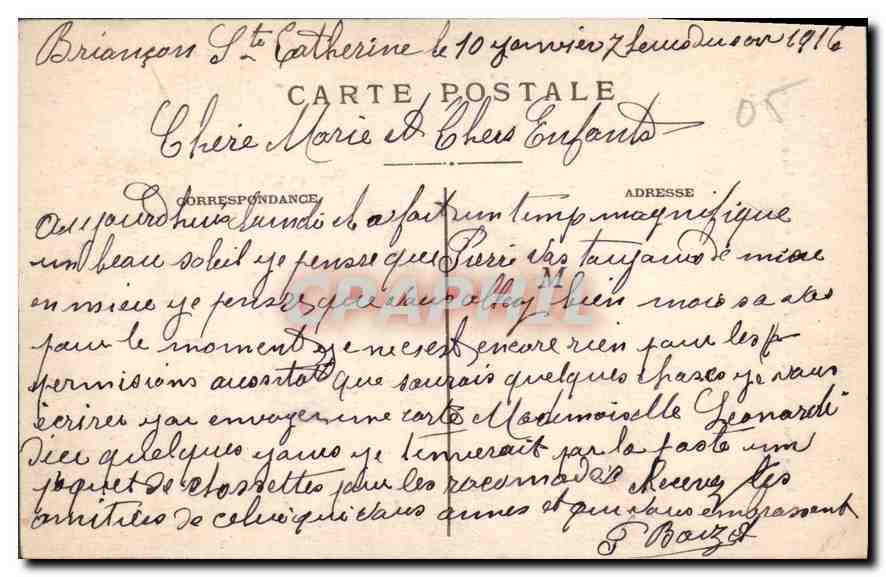 Briançon Ste Catherine le 10 janvier 7 du soir 1916
CARTE POSTALE
05
Chère Marie et Chers Enfants
CORRESPONDANCE
ADRESSE
Aujourdhui Lundi il a fait un temp magnifique
un beau soleil je pense que Pierre vas toujours de mieu
en mieu je pense que vous allez bien moi sa vas
M
CPAPHIL
pour le moment je ne c'est encore rien pour les p
permisions aussitot que saurais quelques choses je vous
écrirer j'ai envoyer une carte Mademoiselle Leonardi
dici quelques jours je t'enverait par la poste un
paquet de chossettes pour les racomoder Recevez les
amitiées de celui qui vous aimes et qui vous embrassent
P Boizet